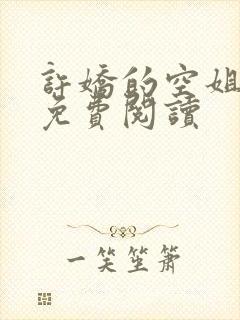 許嬌的空姐
免費閱讀
一笑笙簫